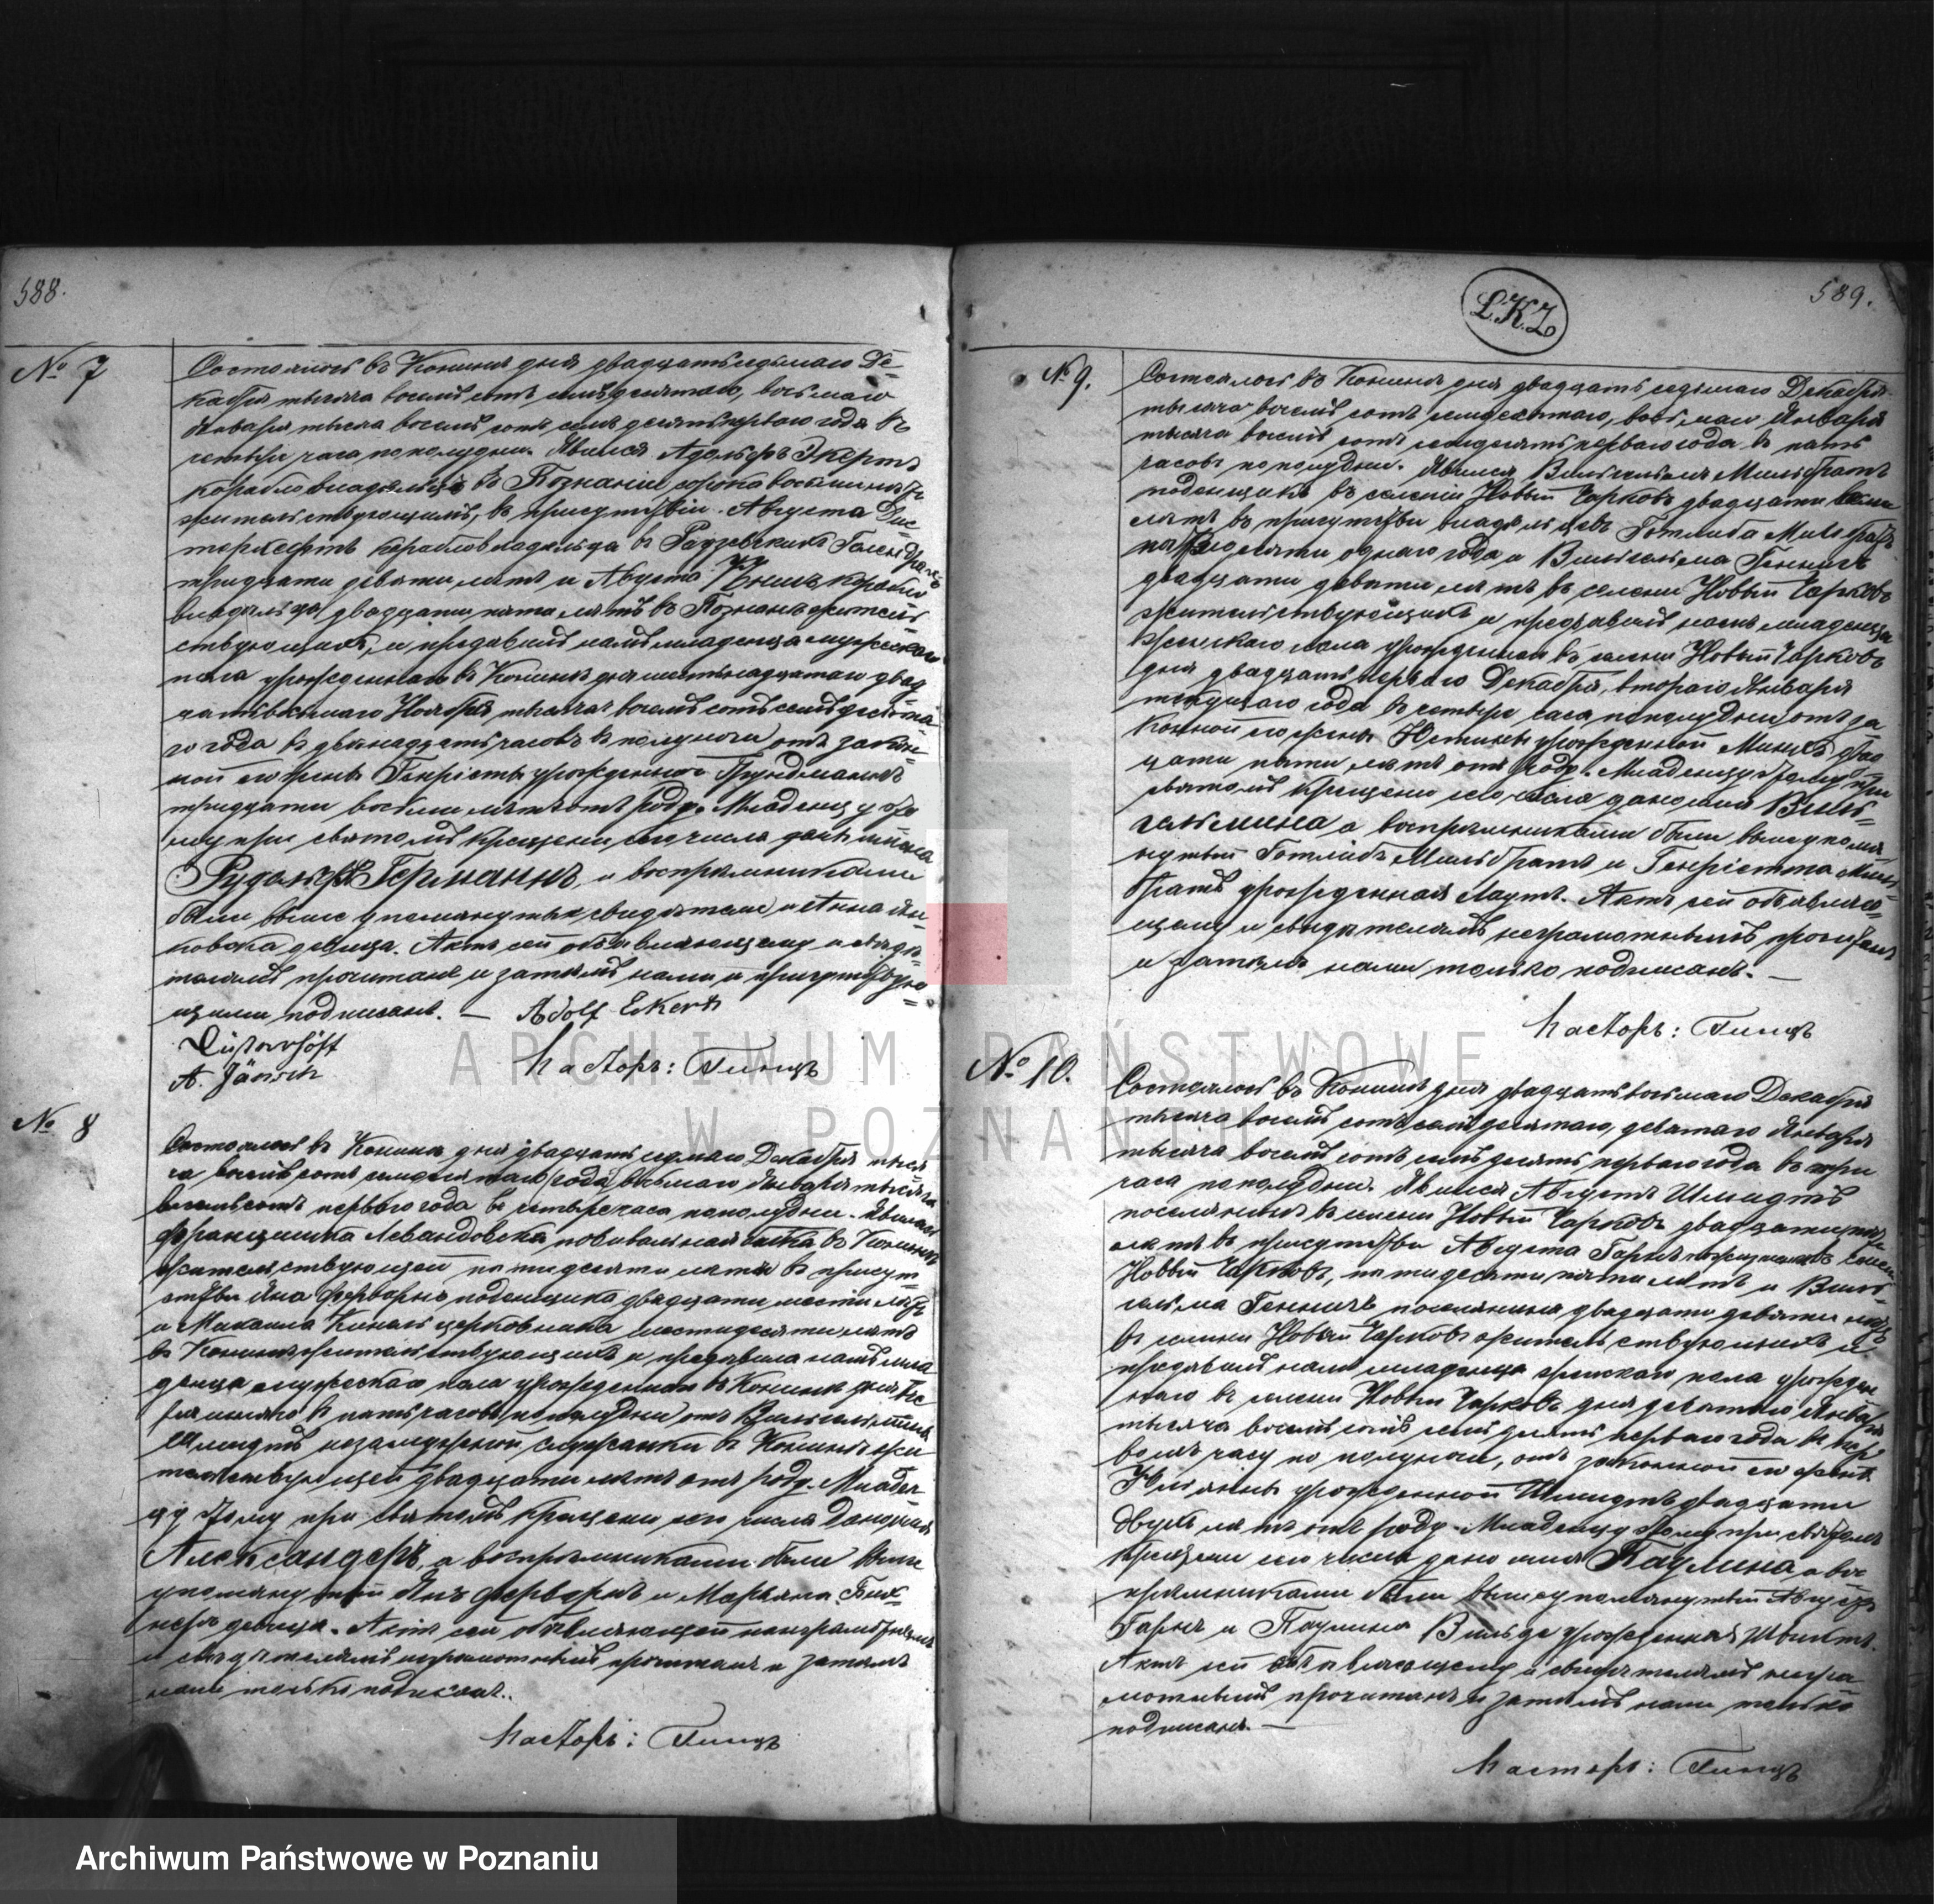 588.
№ 7
Состоялось въ Конинѣ дня двадцать седьмаго Де-
кабря тысяча восемь сотъ семьдесятаго, восьмаго
Января тысяча восемь сотъ семьдесятъ перваго года въ
четыри часа пополудни. Явился Адольфъ Экертъ
въ Познани сорока восьми лѣтъ
жительствующій, въ присутствіи Августа Дис-
терхефтъ кораблевладельца въ
тридцати девяти лѣтъ и Августа
двадцати пяти лѣтъ въ Познанѣ жительс
ствующихъ, и предъявилъ намъ младенца мужескаго
пола урожденнаго въ Конинѣ дня шестьнадцатаго двад
цать восьмаго Ноября тысяча восемь сотъ семьдесята-
го года въ двѣнадцать часовъ въ полуночи отъ закон-
ной его жены Генріеты урожденной
тридцати восьми лѣтъ отъ роду. Младенцу это
му при святомъ крещени сего числа дано имена
Рудольфъ Германнъ, а воспріемниками
были выше упомянутые свидѣтели и Анна Ян
ковска девица. Актъ сей объявляющему и свидѣ-
телямъ прочитанъ и затѣмъ нами и присутствую
щими подписанъ. — Adolf Eckert
Düsterhöft
A. Jänsch
Пасторъ: Гинцъ
№ 8
Состоялось въ Конинѣ дня двадцать седмаго Декабря тыся
ча восемь сотъ семьдесятаго года, восьмаго Января тысяча
восемьсотъ перваго года въ четыре часа пополудни. Явилась
Францишка Левандовска, повивальная бабка въ Конинѣ
жительствующей пятидесяти лѣтъ въ присут
ствіи Яна подёнщика двадцати шести лѣтъ
и Михаила церковника шестидесяти лѣтъ
въ Конинѣ жительствующихъ и предъявила намъ мла
денца мужескаго пола урожденнаго въ Конинѣ дня
въ пять часовъ пополудни отъ Вильгельмины
Шмидтъ незамужной служанки въ Конинѣ жи
тельствующей двадцати лѣтъ отъ роду. Младен
цу этому при святомъ крещени сего числа дано имя
Александеръ, а воспріемниками были выше
упомянутый Янъ и Марьяна
девица. Актъ сей объявляющей неграмотнымъ
и свидѣтелямъ неграмотнымъ прочитанъ и затѣмъ
нами только подписанъ.
Пасторъ: Гинцъ
L.K.Z
589.
№ 9.
Состоялось въ Конинѣ дня двадцать седьмаго Декабря
тысяча восемь сотъ семьдесятаго, восьмаго Января
тысяча восемь сотъ семьдесятъ перваго года въ пять
часовъ пополудни. Явился Вильгельмъ Мильбратъ
поденщикъ въ селеніи Новый Чарковъ двадцати восми
лѣтъ въ присутствіи владѣльцевъ Готлиба Мильбратъ
пятидесяти одного года и Вильгельма Геннигъ
двадцати девяти лѣтъ въ селени Новый Чарковъ
жительствующихъ и предъявилъ намъ младенца
женскаго пола урожденнаго въ селени Новый Чарковъ
дня двадцать перваго Декабря, втораго Января
текущаго года въ четыре часа пополудни отъ за
конной его жены Юстины урожденной двад
цати пяти лѣтъ отъ роду. Младенцу этому при
святомъ крещени сего числа дано имя Виль-
гельмина а воспріемниками были вышеупомя-
нутый Готлибъ Мильбратъ и Генріетта Миль
братъ урожденная Лаутъ. Актъ сей объявляю-
щему и свидѣтелямъ неграмотнымъ прочитанъ
и затѣмъ нами только подписанъ. —
Пасторъ: Гинцъ
№ 10.
Состоялось въ Конинѣ дня двадцать восьмаго Декабря
тысяча восемь сотъ семьдесятаго, девятаго Января
тысяча восемь сотъ семьдесятъ перваго года въ три
часа пополудни. Явился Августъ Шмидтъ
поселянинъ въ селени Новый Чарковъ двадцати
лѣтъ въ присутствіи Августа Гарнъ въ селени
Новый Чарковъ, пятидесяти пяти лѣтъ и Виль-
гельма Геннигъ поселянина двадцати девяти лѣтъ
въ селени Новый Чарковъ жительствующихъ и
предъявилъ намъ младенца женскаго пола урожден
наго въ селени Новый Чарковъ дня девятаго Января
тысяча восемь сотъ семьдесятъ перваго года въ пер
вомъ часу по полуночи, отъ законной его жены
Юліянны урожденной Шмидтъ двадцати
двухъ лѣтъ отъ роду. Младенцу этому при святомъ
крещени сего числа дано имя Паулина а вос
пріемниками были вышеупомянутый Августъ
Гарнъ и Паулина Вильде урожденная
Актъ сей объявляющему и свидѣтелямъ негра
мотнымъ прочитанъ и затѣмъ нами только
подписанъ. —
Пасторъ: Гинцъ
ARCHIWUM PAŃSTWOWE
W POZNANIU
Archiwum Państwowe w Poznaniu